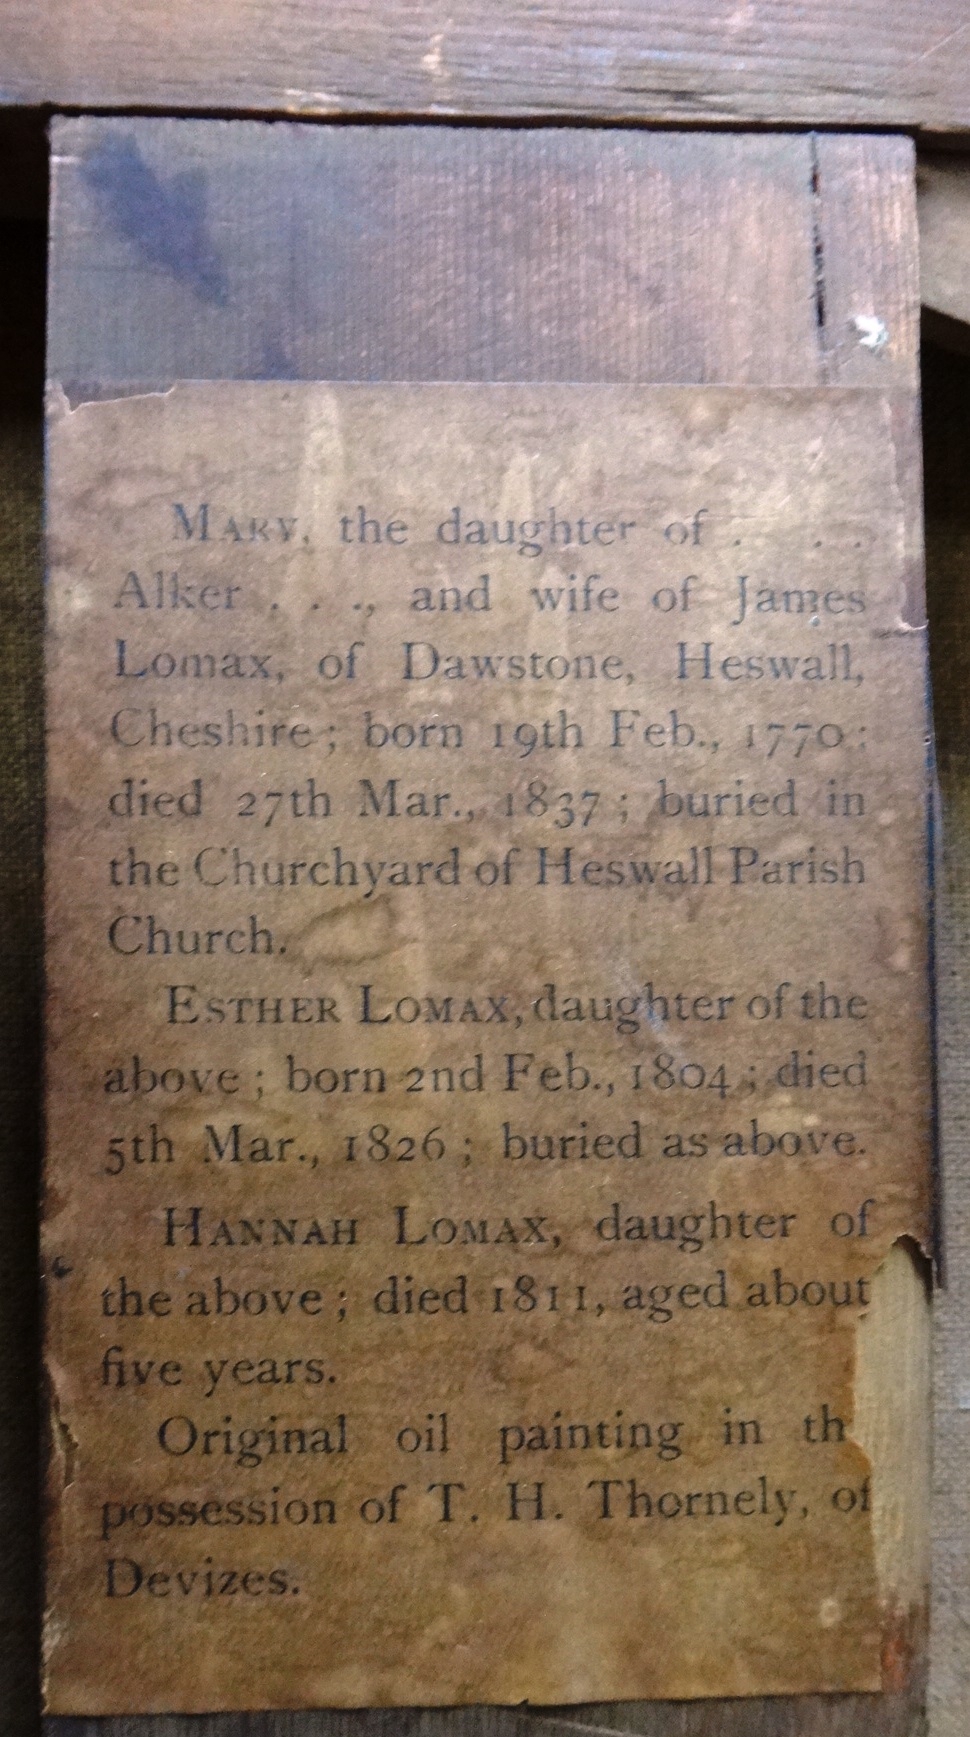 MARY, the daughter of . . .
Alker . . ., and wife of James
Lomax, of Dawstone, Heswall,
Cheshire; born 19th Feb., 1770;
died 27th Mar., 1837; buried in
the Churchyard of Heswall Parish
Church.
ESTHER LOMAX, daughter of the
above; born 2nd Feb., 1804; died
5th Mar., 1826; buried as above.
HANNAH LOMAX, daughter of
the above; died 1811, aged about
five years.
Original oil painting in th
possession of T. H. Thornely, of
Devizes.